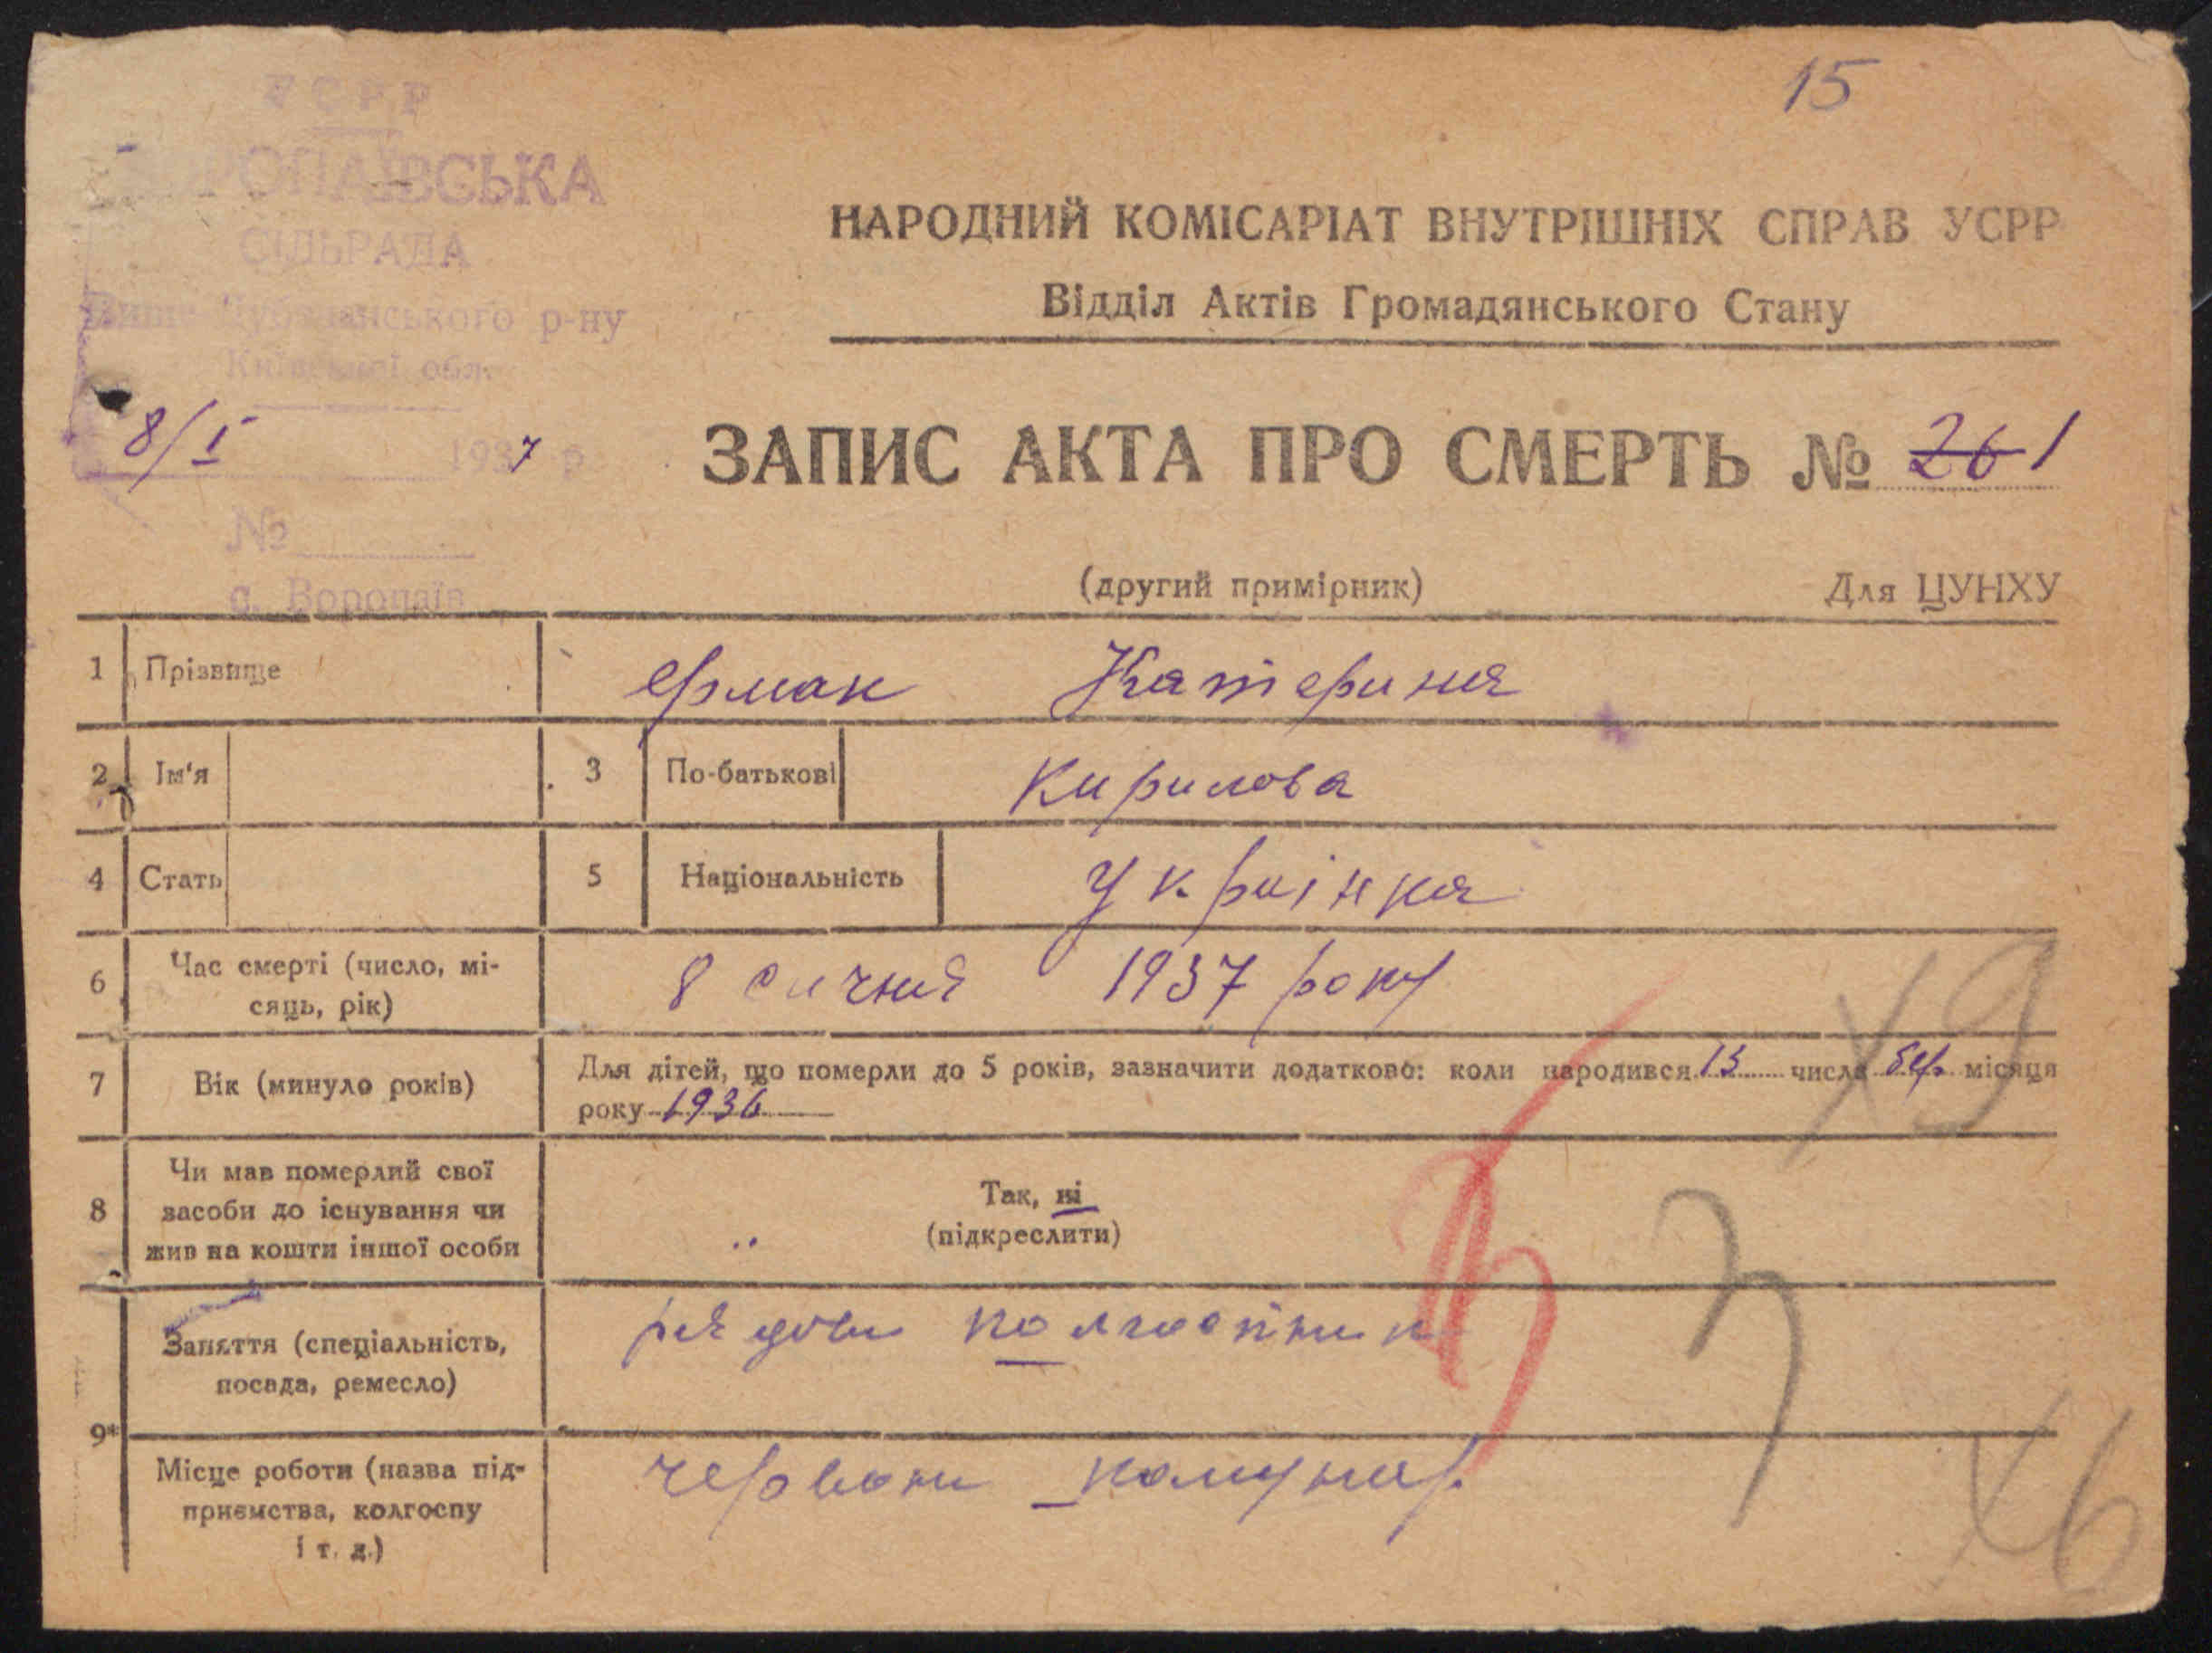 15
УСРР
ВОРОПАЇВСЬКА
СІЛЬРАДА
р-ну
Київської обл.
8/I 1937 р.
№
с. Воропаїв
НАРОДНИЙ КОМІСАРІАТ ВНУТРІШНІХ СПРАВ УСРР
Відділ Актів Громадянського Стану
ЗАПИС АКТА ПРО СМЕРТЬ № 26 1
(другий примірник) Для ЦУНХУ
1 Прізвище Єрмак Катерина
2 Ім'я 3 По-батькові Кирилова
4 Стать 5 Національність Українка
6 Час смерті (число, мі-
сяць, рік) 8 сичня 1937 року
7 Вік (минуло років) Для дітей, що померли до 5 років, зазначити додатково: коли народився 13 числа бер. місяця
року 1936
8 Чи мав померлий свої
засоби до існування чи
жив на кошти іншої особи
Так, ні
(підкреслити)
9* Заняття (спеціальність,
посада, ремесло)
рядови колгоспник
Місце роботи (назва під-
приємства, колгоспу
і т. д.)
червони комунар
х9
х6